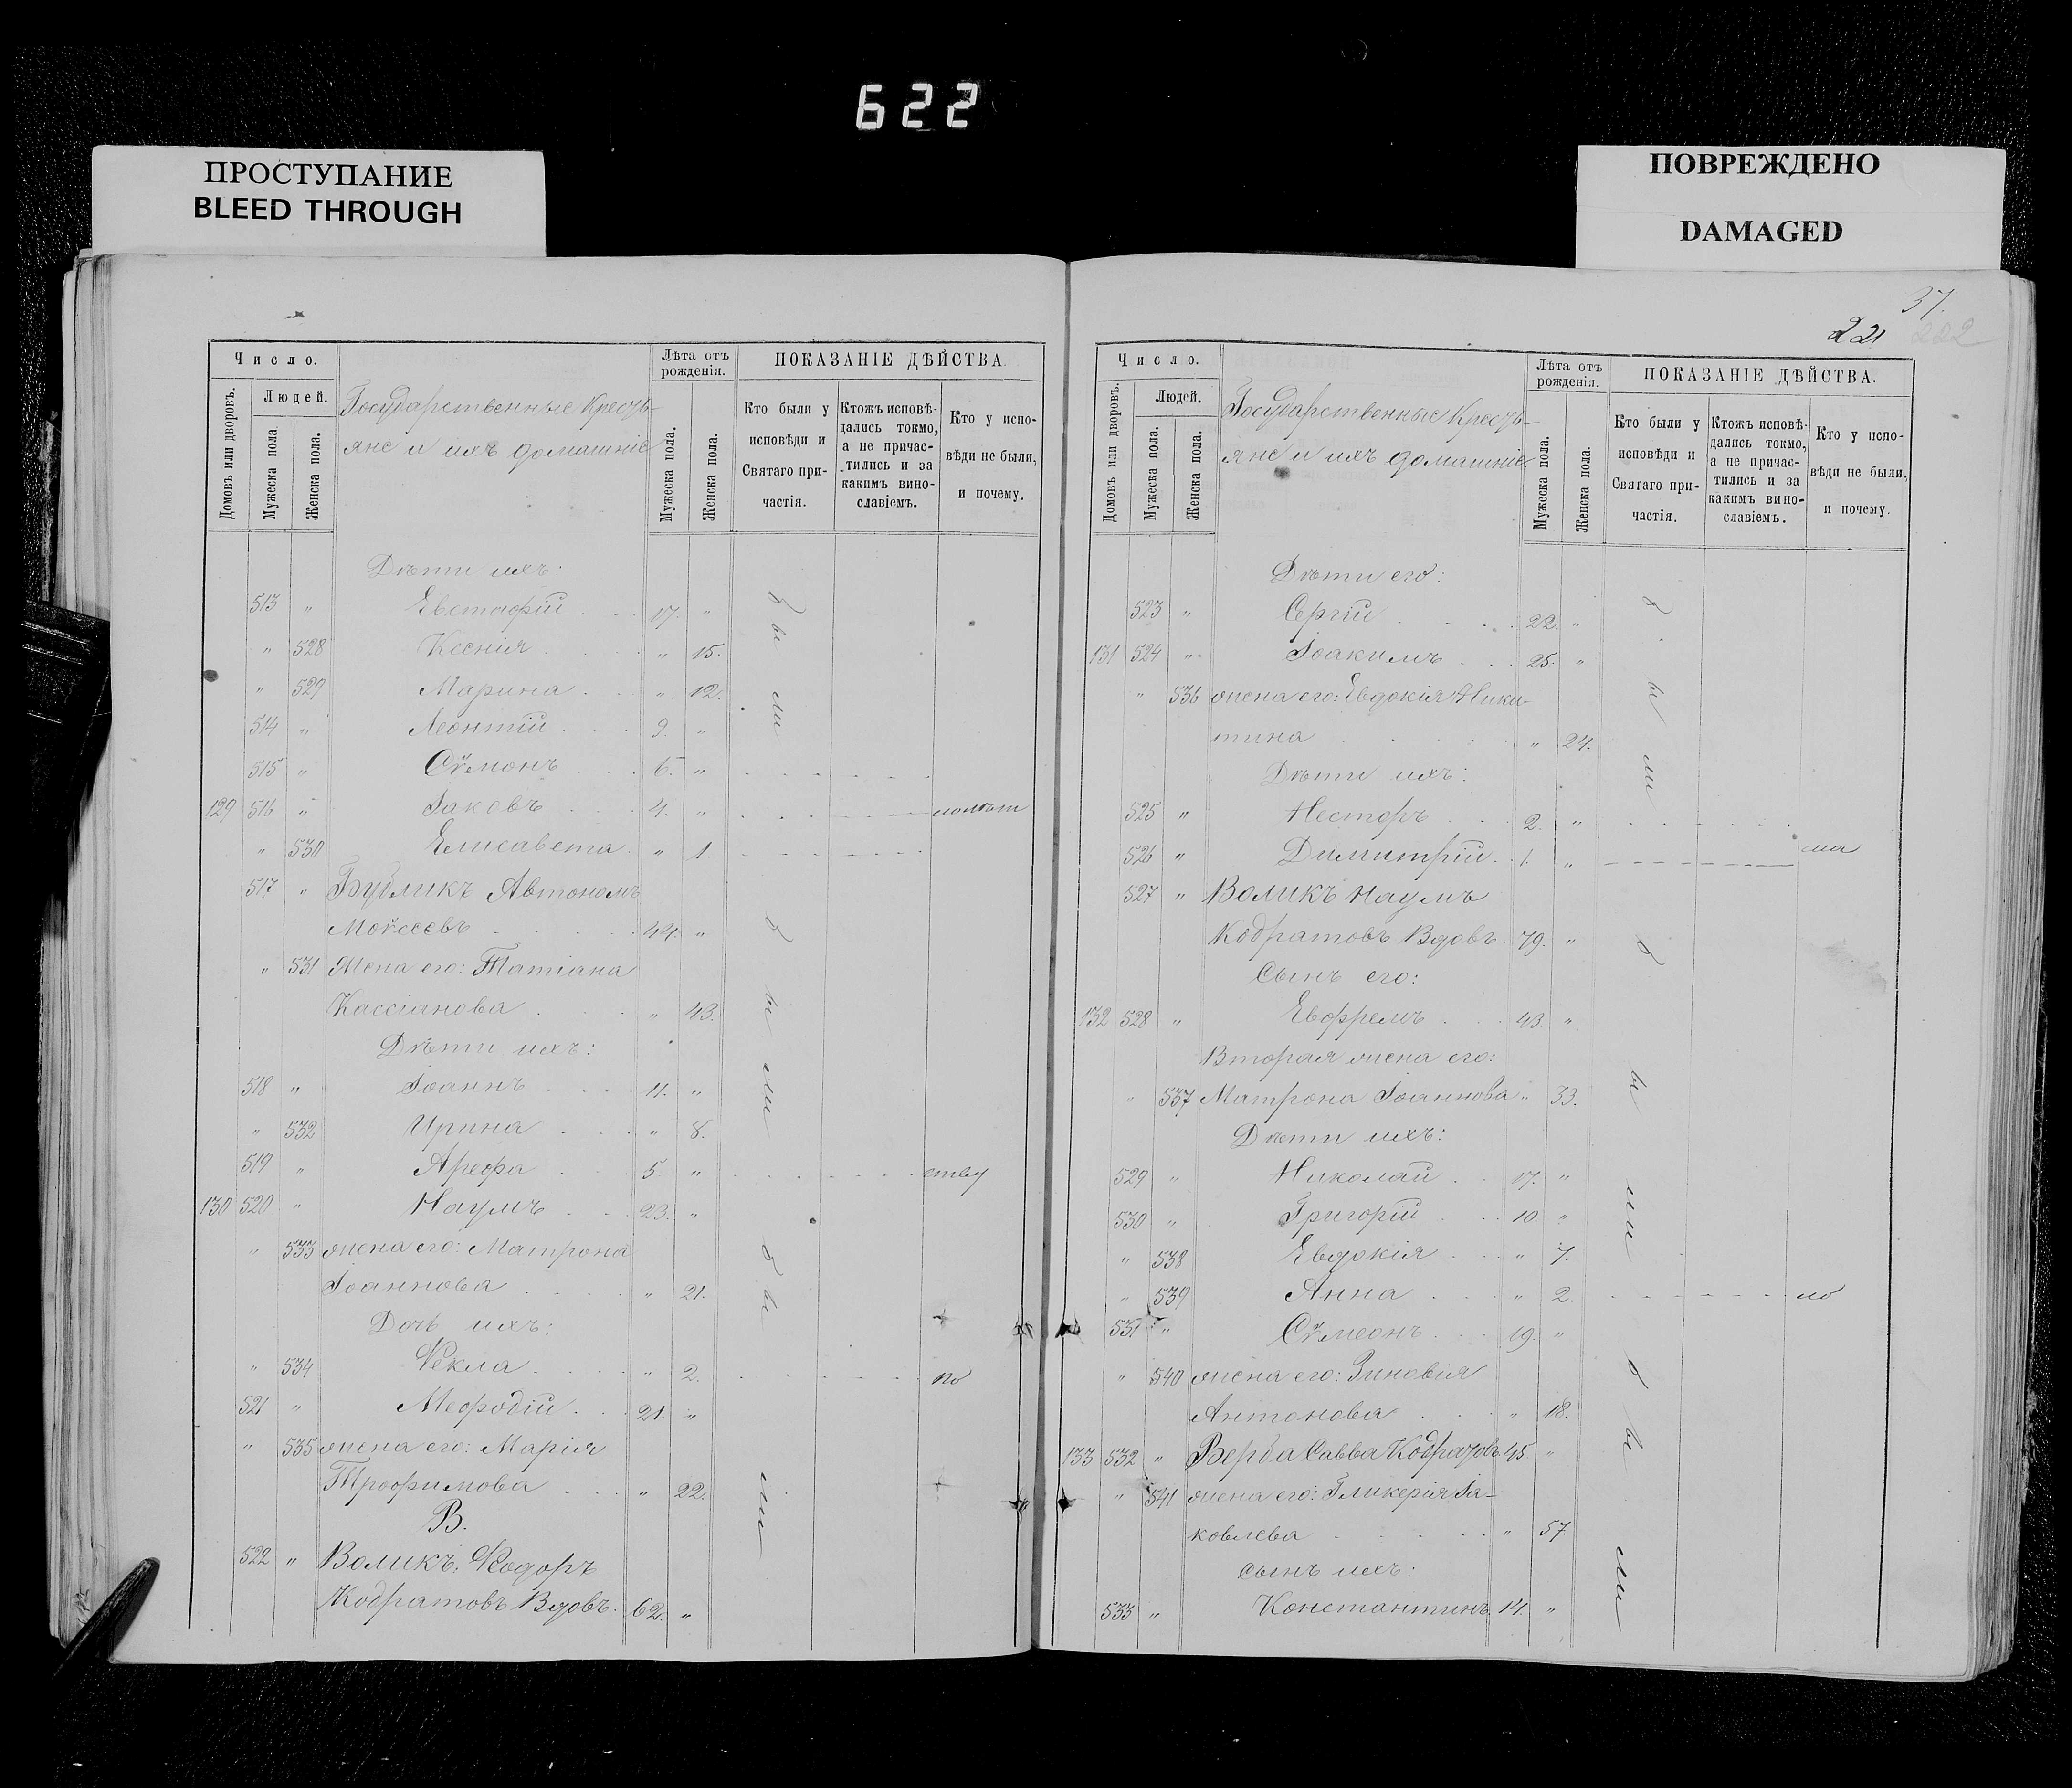 622
ПРОСТУПАНИЕ
BLEED THROUGH
ПОВРЕЖДЕНО
DAMAGED
Число.
Людей.
Домовъ или дворовъ.
Мужеска пола.
Женска пола.
Государственные Кресть-
яне и ихъ домашніе
Лѣта отъ
рожденія.
Мужеска пола.
Женска пола.
ПОКАЗАНІЕ ДѢЙСТВА.
Кто были у
исповѣди и
Святаго при-
частія.
Ктожъ исповѣ-
дались токмо,
а не причас-
тились и за
какимъ вино-
славіемъ.
Кто у испо-
вѣди не были,
и почему.
Дѣти ихъ:
513 " Евстафій 17. "
" 528 Ксенія " 15.
" 529 Марина " 12.
514 " Леонтій 9. "
515 " Сѵмонъ 6. "
129 516 " Іаковъ 4. "
" 530 Елисавета " 1.
517 " Бубликъ Автономъ
Моѵсеевъ 44. "
" 531 Жена его: Татіана
Кассіанова " 43.
Дѣти ихъ:
518 " Іоаннъ 11. "
" 532 Ирина " 8.
519 " Арефа 5 "
130 520 " Наумъ 23. "
" 533 жена его: Матрона
Іоаннова " 21.
Дочь ихъ:
" 534 Ѳекла " 2. по
521 " Меѳодій 21. "
" 535 жена его: Марія
Трофимова " 22.
В.
522 " Воликъ: Ѳеодоръ
Кодратовъ Вдовъ. 62. "
были
были
были
37.
221 222
Число.
Людей.
Домовъ или дворовъ.
Мужеска пола.
Женска пола.
Государственные Кресть-
яне и ихъ домашніе.
Лѣта отъ
рожденія.
Мужеска пола.
Женска пола.
ПОКАЗАНІЕ ДѢЙСТВА.
Кто были у
исповѣди и
Святаго при-
частія.
Ктожъ исповѣ-
дались токмо,
а не причас-
тились и за
какимъ вино-
славіемъ.
Кто у испо-
вѣди не были,
и почему.
Дѣти его:
523 " Сергій 22. "
131 524 " Іоакимъ 25. "
" 536 жена его: Евдокія Ники-
тина " 24.
Дѣти ихъ:
525 " Несторъ 2. "
526 " Димитрій 1. " ма
527 " Воликъ Наумъ
Кодратовъ Вдовъ. 79. "
Сынъ его:
132 528 " Евфремъ 43. "
Вторая жена его:
" 537 Матрона Іоаннова " 33.
Дѣти ихъ:
529 " Николай 17. "
530 " Григорій 10. "
" 538 Евдокія " 7.
" 539 Анна " 2.
531 " Сѵмеонъ 19. "
" 540 жена его: Зиновія
Антонова " 18.
133 532 " Верба Савва Кодратовъ 45. "
" 541 жена его: Гликерія Іа-
ковлева " 57.
сынъ ихъ:
533 " Константинъ 14. "
были
были
были